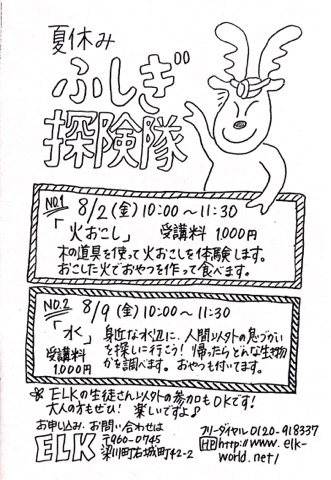 夏休み
ふしぎ
探険隊
NO.1 8/2(金) 10:00～11:30
「火おこし」 受講料 1,000円
木の道具を使って火おこしを体験します。
おこした火でおやつを作って食べます。
NO.2 8/9(金) 10:00～11:30
「水」 身近な水辺に、人間以外の息づかい
受講料 を探しに行こう! 帰ったらどんな生き物
1,000円 かを調べます。おやつも付いてます。
※ ELKの生徒さん以外の参加もOKです!
大人の方もぜひ! 楽しいですよ♪
お申し込み・お問い合わせは
ELK 〒960-0745
梁川町右城町42-2
フリーダイヤル 0120-918337
HP http://www.elk-
world.net/